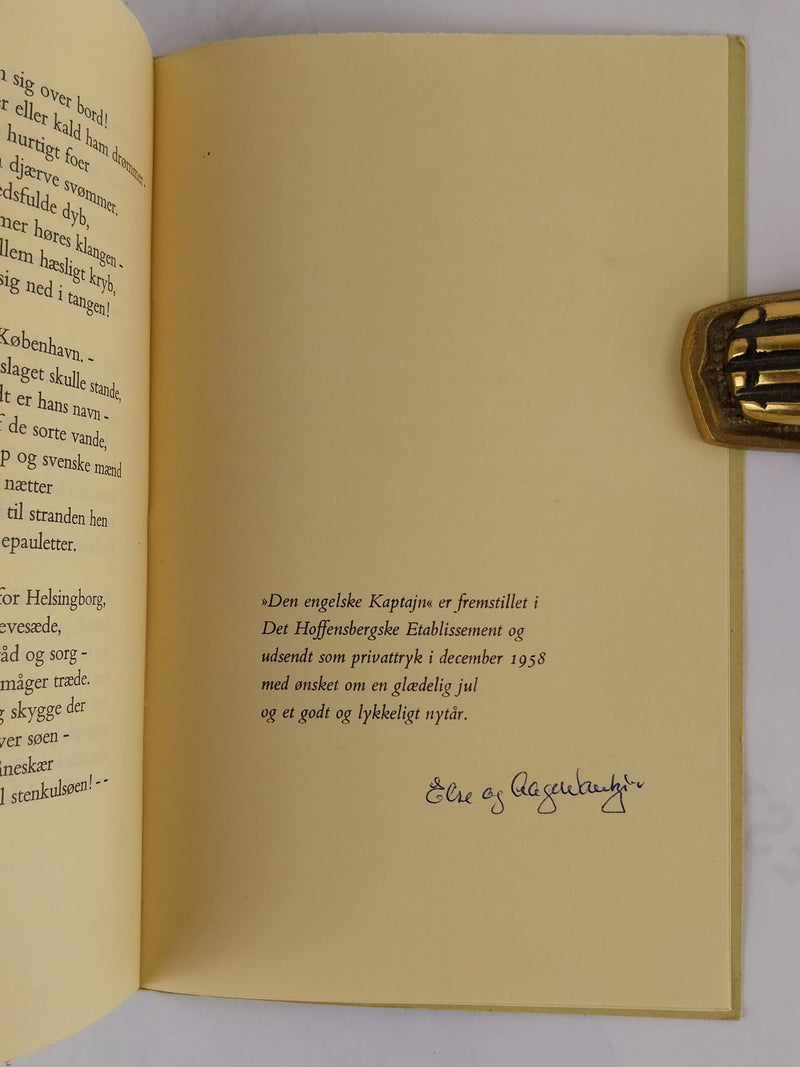 sig over bord!
eller kald ham drømmer,
hurtigt foer
djærve svømmer,
dyb,
høres klangen -
hæsligt kryb,
sig ned i tangen!
København. -
slaget skulle stande,
er hans navn -
de sorte vande,
og svenske mænd
nætter
til stranden hen
epauletter.
Helsingborg,
og sorg -
måger træde.
skygge der
søen -
stenkulsøen! - -
»Den engelske Kaptajn« er fremstillet i
Det Hoffensbergske Etablissement og
udsendt som privattryk i december 1958
med ønsket om en glædelig jul
og et godt og lykkeligt nytår.
Else og Aage